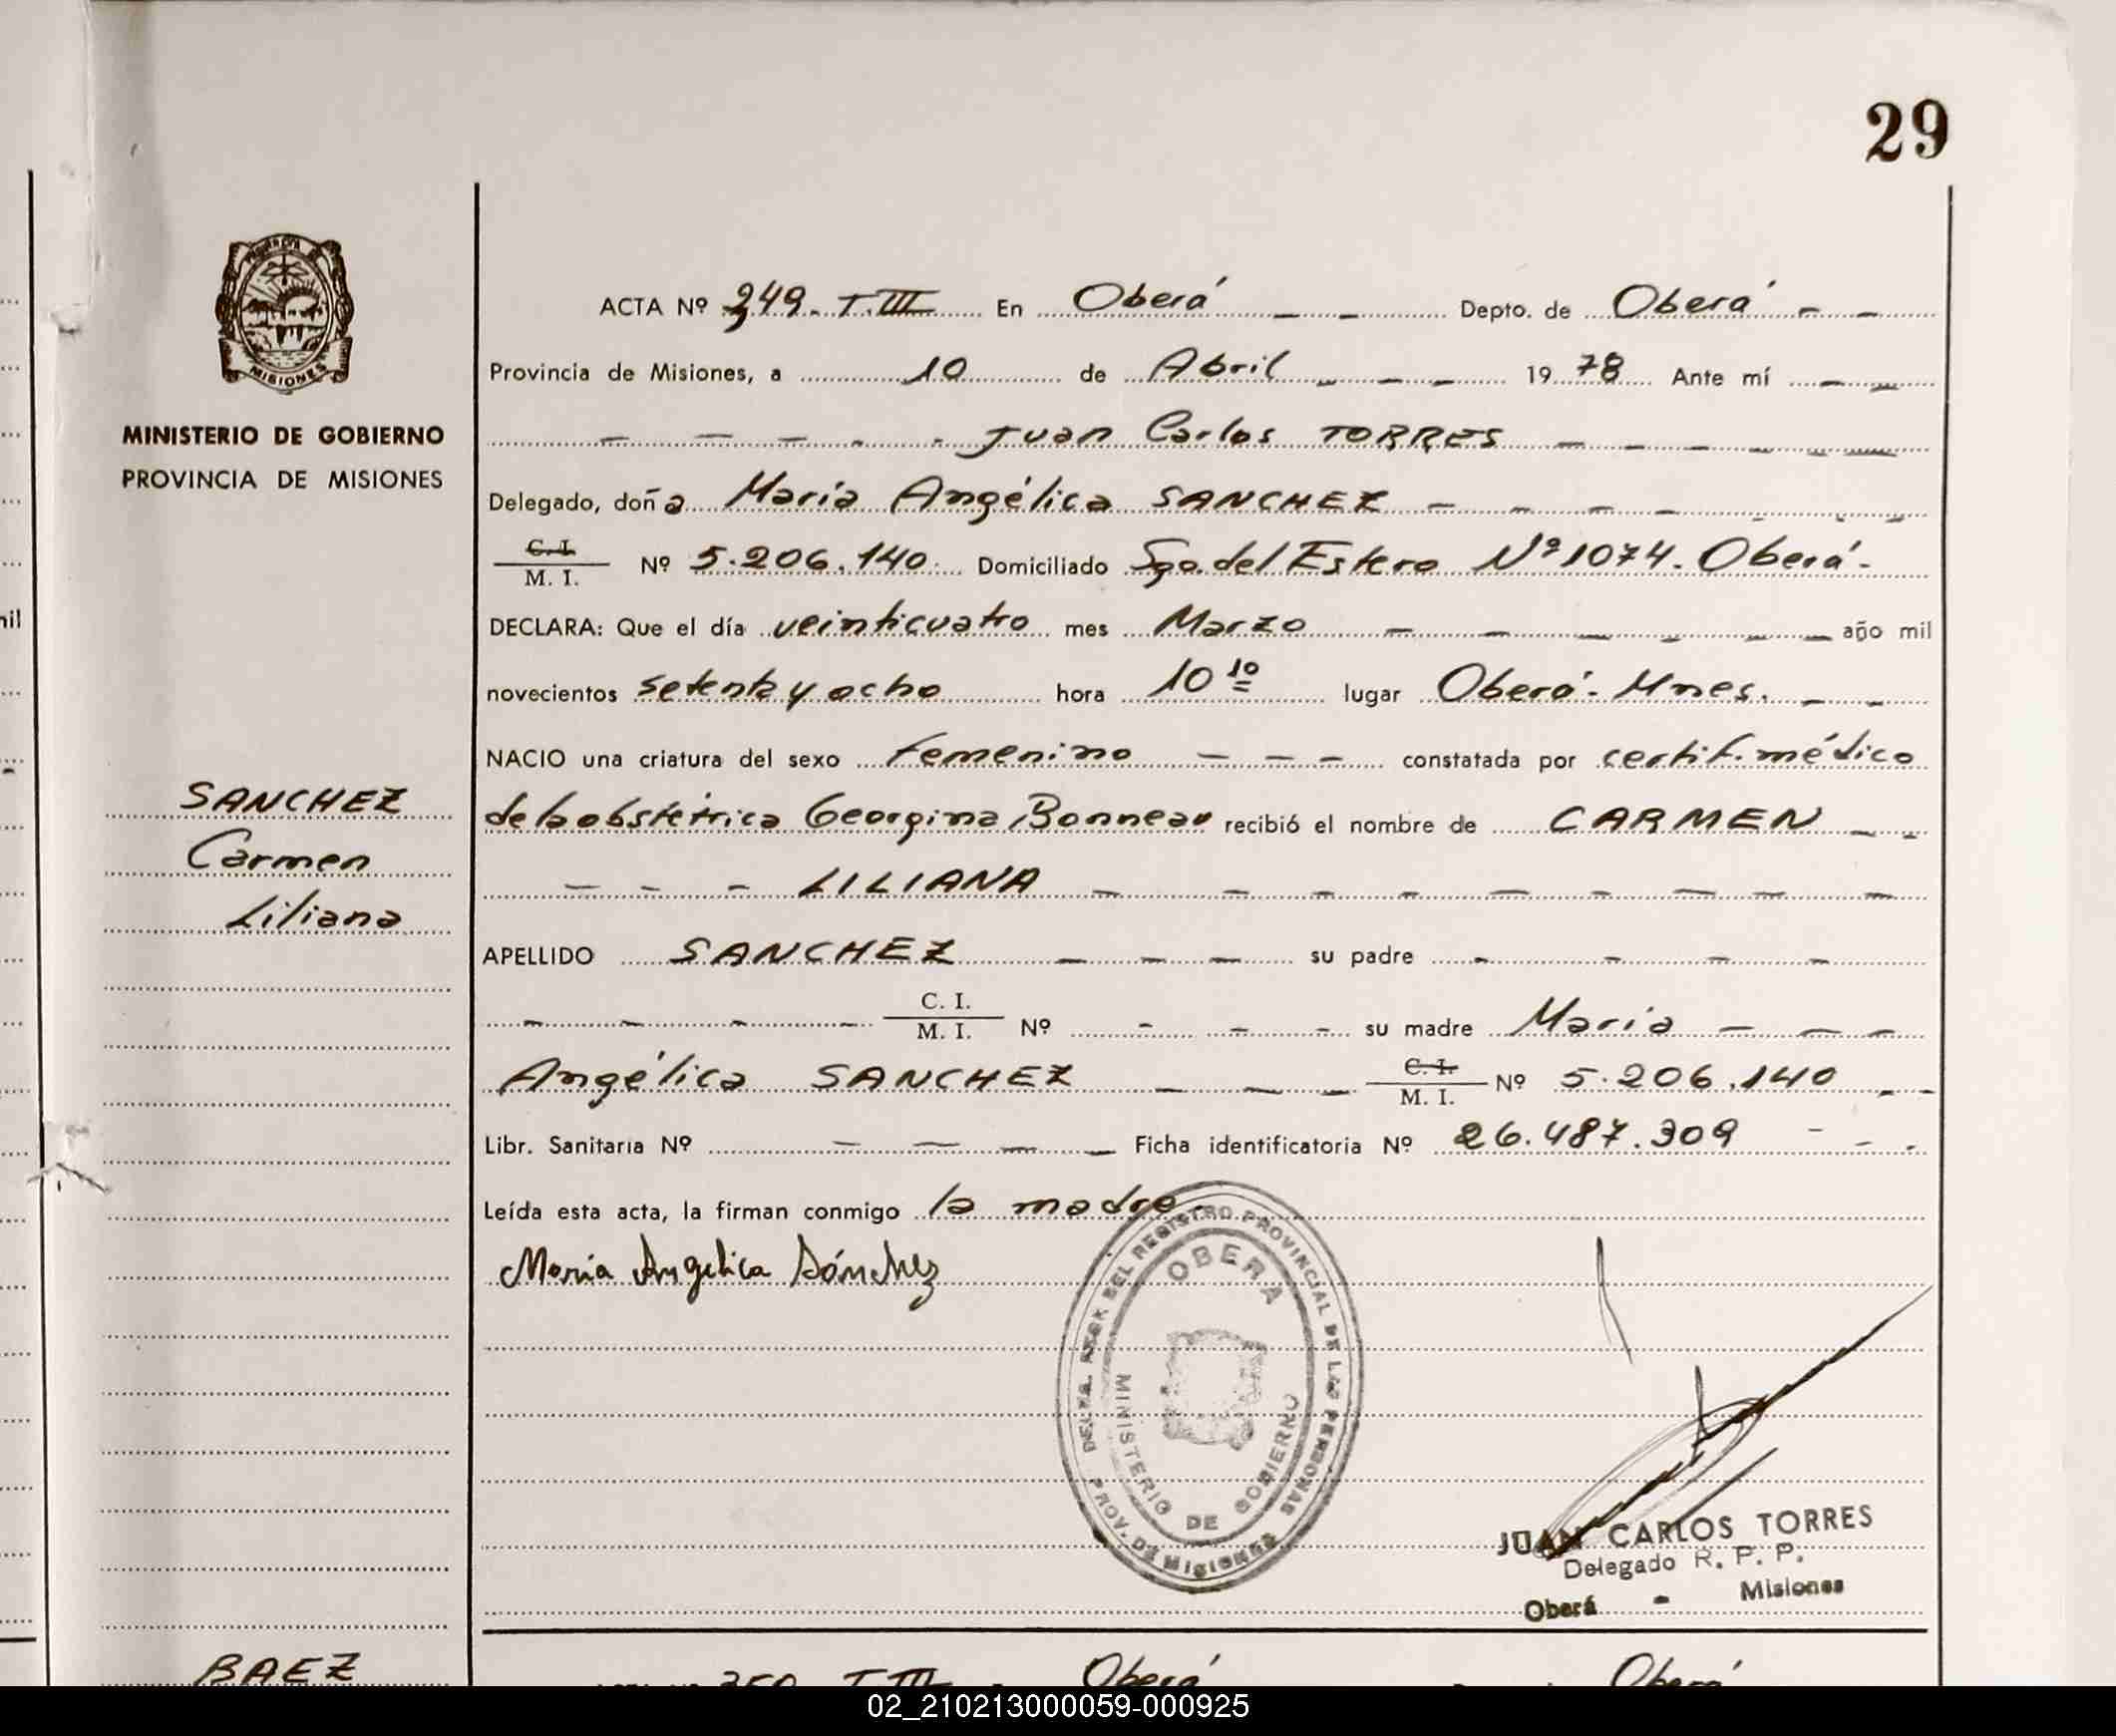 29
PROVINCIA
MISIONES
MINISTERIO DE GOBIERNO
PROVINCIA DE MISIONES
SANCHEZ
Carmen
Liliana
BAEZ
ACTA Nº 349. T. III En Oberá Depto. de Oberá
Provincia de Misiones, a 10 de Abril 1978 Ante mí
Juan Carlos TORRES
Delegado, doña María Angélica SANCHEZ
C. I.
M. I. Nº 5.206.140. Domiciliado Sgo. del Estero Nº 1074. Oberá.
DECLARA: Que el día veinticuatro mes Marzo año mil
novecientos setenta y ocho hora 10 10 lugar Oberá - Mnes.
NACIO una criatura del sexo femenino constatada por certif. médico
de la obstétrica Georgina Bonneau recibió el nombre de CARMEN
LILIANA
APELLIDO SANCHEZ su padre
C. I.
M. I. Nº su madre María
Angélica SANCHEZ C. I. M. I. Nº 5.206.140
Libr. Sanitaria Nº Ficha identificatoria Nº 26.487.309
Leída esta acta, la firman conmigo la madre
María Angelica Sánchez
DEL REGISTRO PROVINCIAL DE LAS PERSONAS
PROV. DE MISIONES
OBERA
MINISTERIO DE GOBIERNO
JUAN CARLOS TORRES
Delegado R. P. P.
Oberá - Misiones
350 T. III Oberá Oberá
mil
02_210213000059-000925